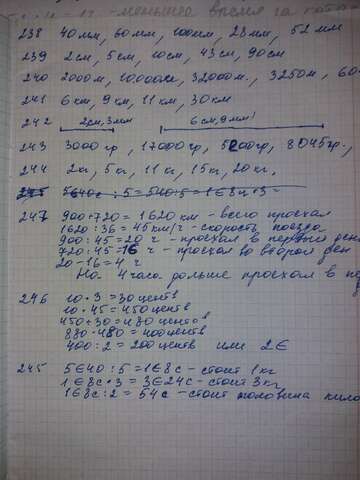 - меньшее время за
238 40мм, 60мм, 100мм, 23мм, 52мм
239 2см, 5см, 10см, 43см, 90см
240 2000м, 10000м, 32000м, 3250м, 60
241 6км, 9км, 11км, 30км
242 2см,3мм 6см,9мм
243 3000гр, 17000гр, 5200гр, 8045гр.,
244 2кг, 5кг, 11кг, 15кг, 20кг,
245 5€40c : 5 = 540:5 = 1€8ц
247 900+720=1620км - всего проехал
1620:36=45км/ч - скорость поезда
900:45=20ч - проехал в первый ден
720:45=16ч - проехал во второй ден
20-16=4ч
На 4часа дольше проехал в
246 10·3=30центв
10·45=450центв
450+30=480центов
880-480=400центв
400:2=200центв или 2€
245 5€40:5=1€8c - стоит 1кг
1€8c·3=3€24c - стоит 3кг
1€8c:2=54c - стоит половина кило